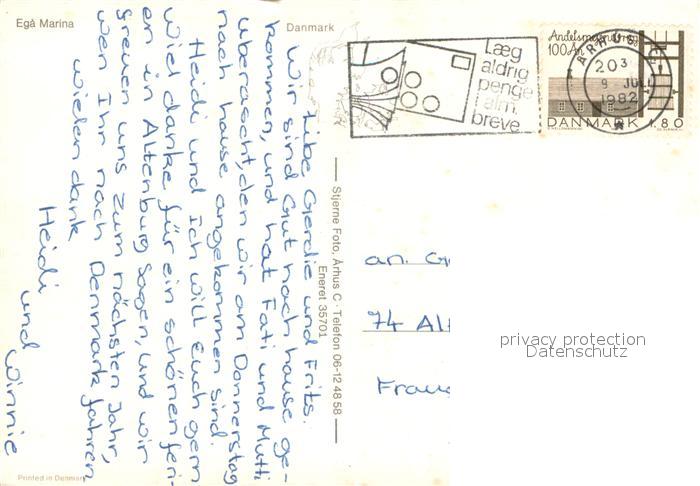 Egå Marina
Danmark
Læg
aldrig
penge
i alm.
breve
ÅRHUS C
203
9 JULI
1982
Andelsmejeriet
100 År
DANMARK 1.80
Libe Gerdie und Frits.
Wir sind Gut nach hause ge-
kommen, und hat Fati und Mutti
überascht, den wir am Donnerstag
nach hause angekommen sind.
Heidi und Ich will Euch gern
viel danke für ein schönen feri-
en in Altenburg sagen, und wir
greuen uns zum nächsten Jahr,
wen Ihr nach Denmark fahren.
vielen dank
Heidi
und
Winnie
Stjerne Foto, Århus C · Telefon 06-12 48 58
Eneret 35701
an. G
74 Alt
Frau
privacy protection
Datenschutz
Printed in Denmark